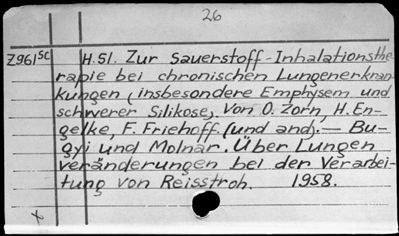 26
Z961 SC H.51. Zur Sauerstoff-Inhalationsthe
rapie bei chronischen Lungenerkran
kungen (insbesondere Emphysem und
schwerer Silikose). Von O. Zorn, H. En-
gelke, F. Friehoff (und and). — Bu-
gyi und Molnar. Über Lungen
veränderungen bei der Verarbei-
tung von Reisstroh. 1958.
x